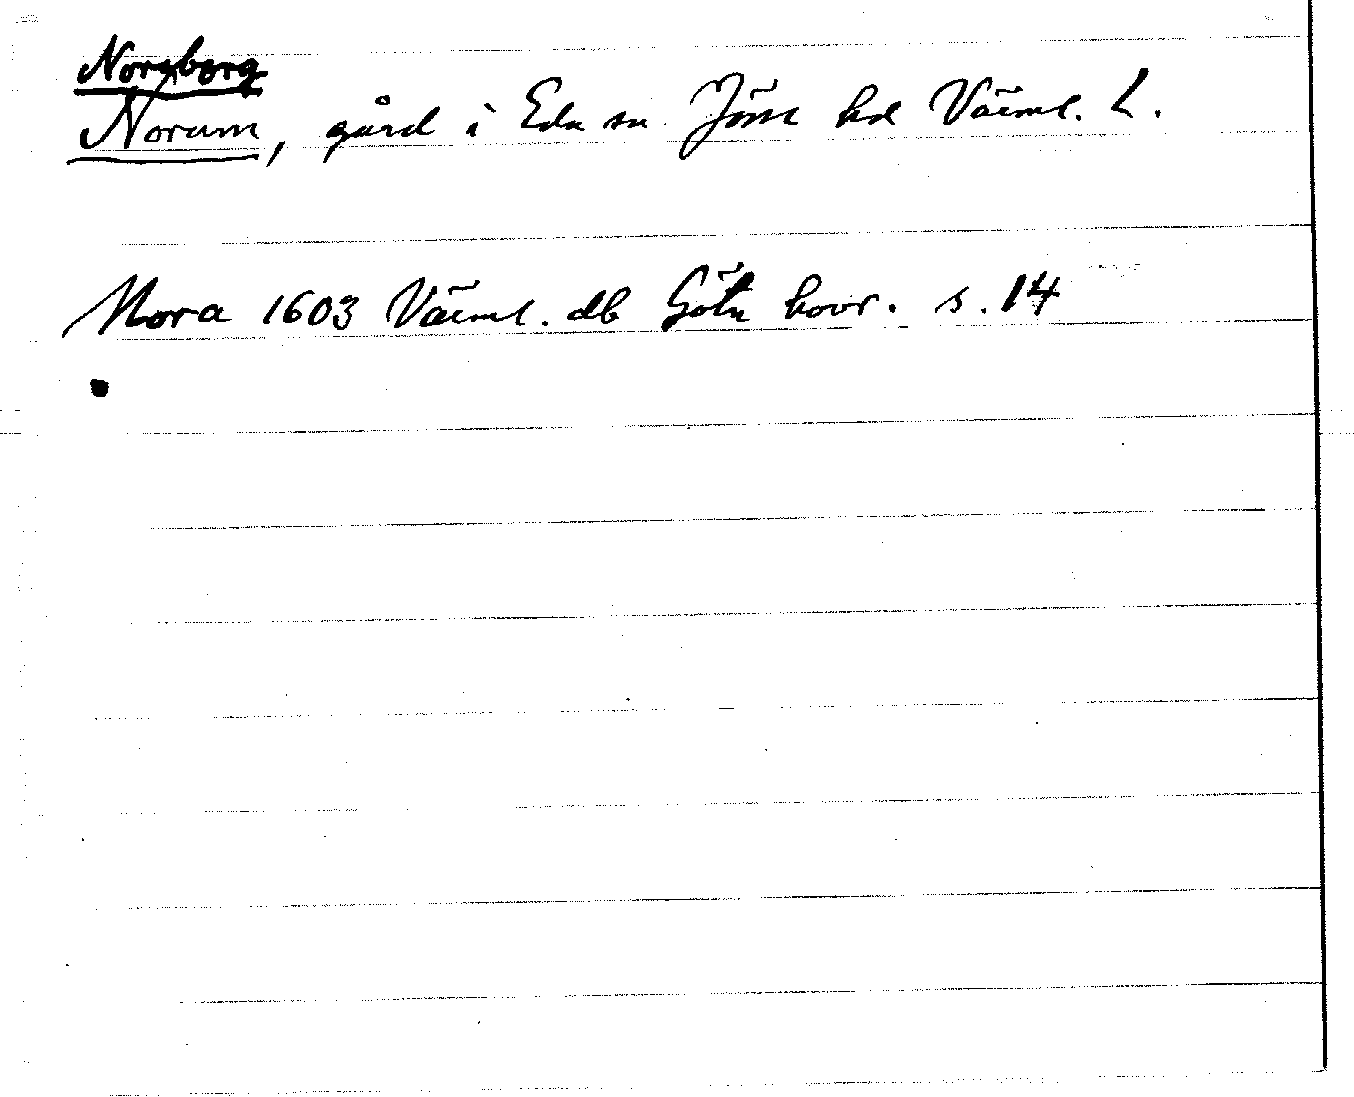 Norgberg
Norum, gård i Eda sn Jöss hd Värml. L.
Nora 1603 Värml. db Göta hovr. s. 14